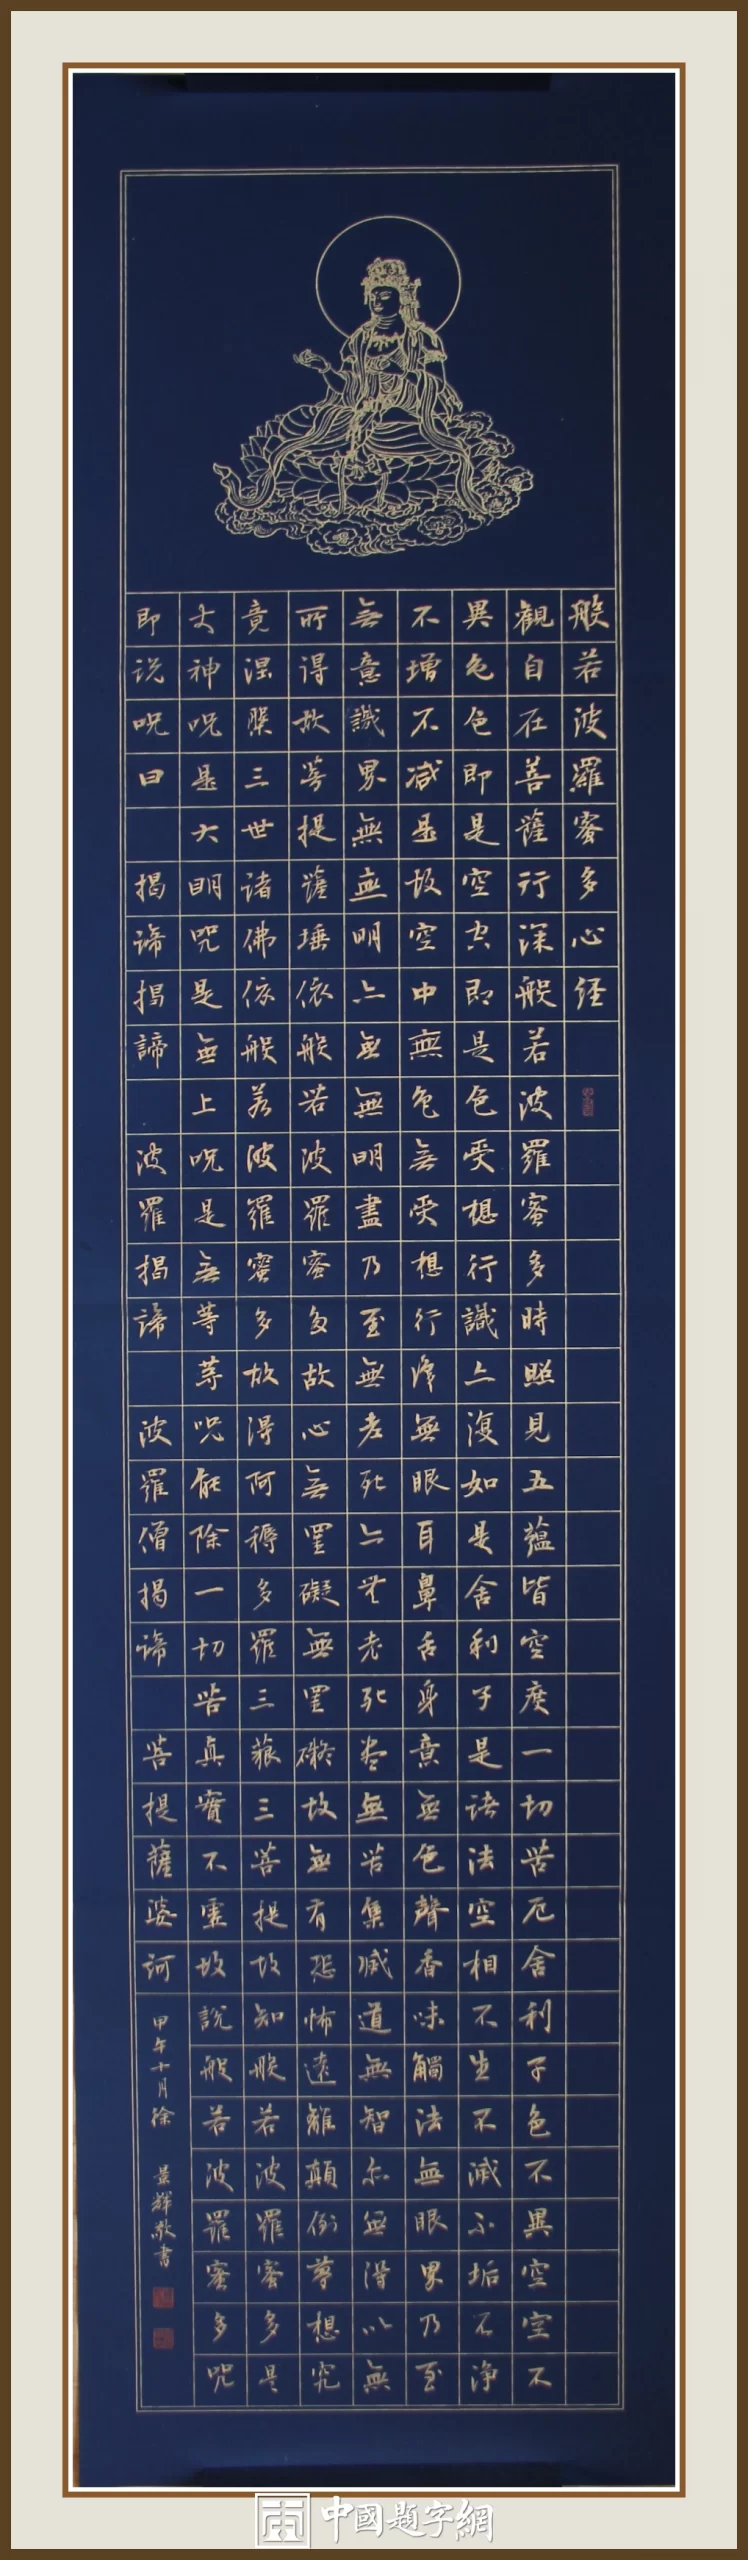 般若波羅蜜多心經
觀自在菩薩行深般若波羅蜜多時照見五蘊皆空度一切苦厄舍利子色不異空空不
異色色即是空空即是色受想行識亦復如是舍利子是諸法空相不生不滅不垢不淨
不增不減是故空中無色無受想行識無眼耳鼻舌身意無色聲香味觸法無眼界乃至
無意識界無無明亦無無明盡乃至無老死亦無老死盡無苦集滅道無智亦無得以無
所得故菩提薩埵依般若波羅蜜多故心無罣礙無罣礙故無有恐怖遠離顛倒夢想究
竟涅槃三世諸佛依般若波羅蜜多故得阿耨多羅三藐三菩提故知般若波羅蜜多是
大神咒是大明咒是無上咒是無等等咒能除一切苦真實不虛故說般若波羅蜜多咒
即说咒曰 揭諦揭諦 波羅揭諦 波羅僧揭諦 菩提薩婆訶
甲午十月徐 景輝敬書
中國題字網